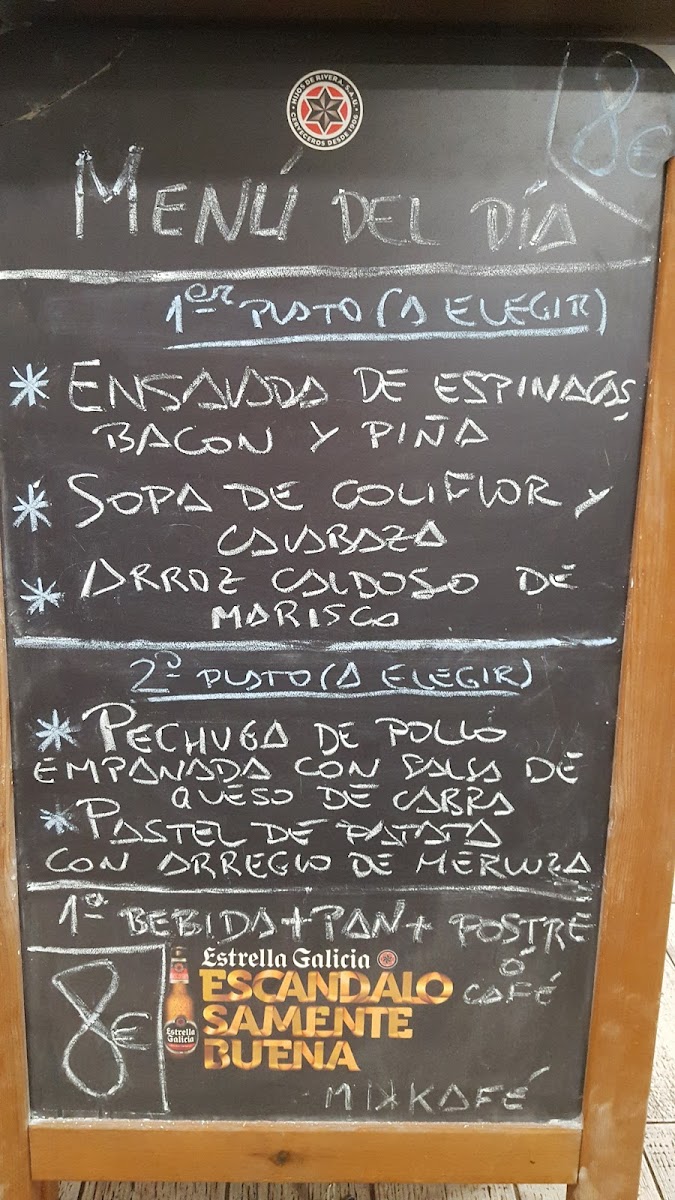 HIJOS DE RIVERA, S.A.U.
CERVECEROS DESDE 1906
8€
MENÚ DEL DÍA
1er PLATO (A ELEGIR)
* ENSALADA DE ESPINACAS,
BACON Y PIÑA
* SOPA DE COLIFLOR Y
CALABAZA
* ARROZ CALDOSO DE
MARISCO
2º PLATO (A ELEGIR)
* PECHUGA DE POLLO
EMPANADA CON SALSA DE
QUESO DE CABRA
* PASTEL DE PATATA
CON ARREGLO DE MERLUZA
1ª BEBIDA + PAN + POSTRE
Ó
CAFÉ
8€
Estrella Galicia
ESCANDALO
SAMENTE
BUENA
Estrella
Galicia
MIKKAFÉ